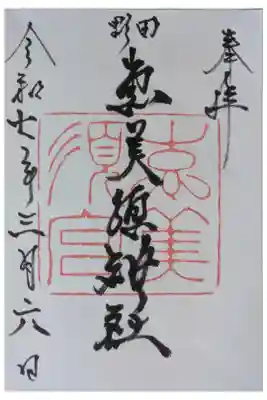 奉拝
野田
恵美須神社
令和七年三月六日
恵美
須宮